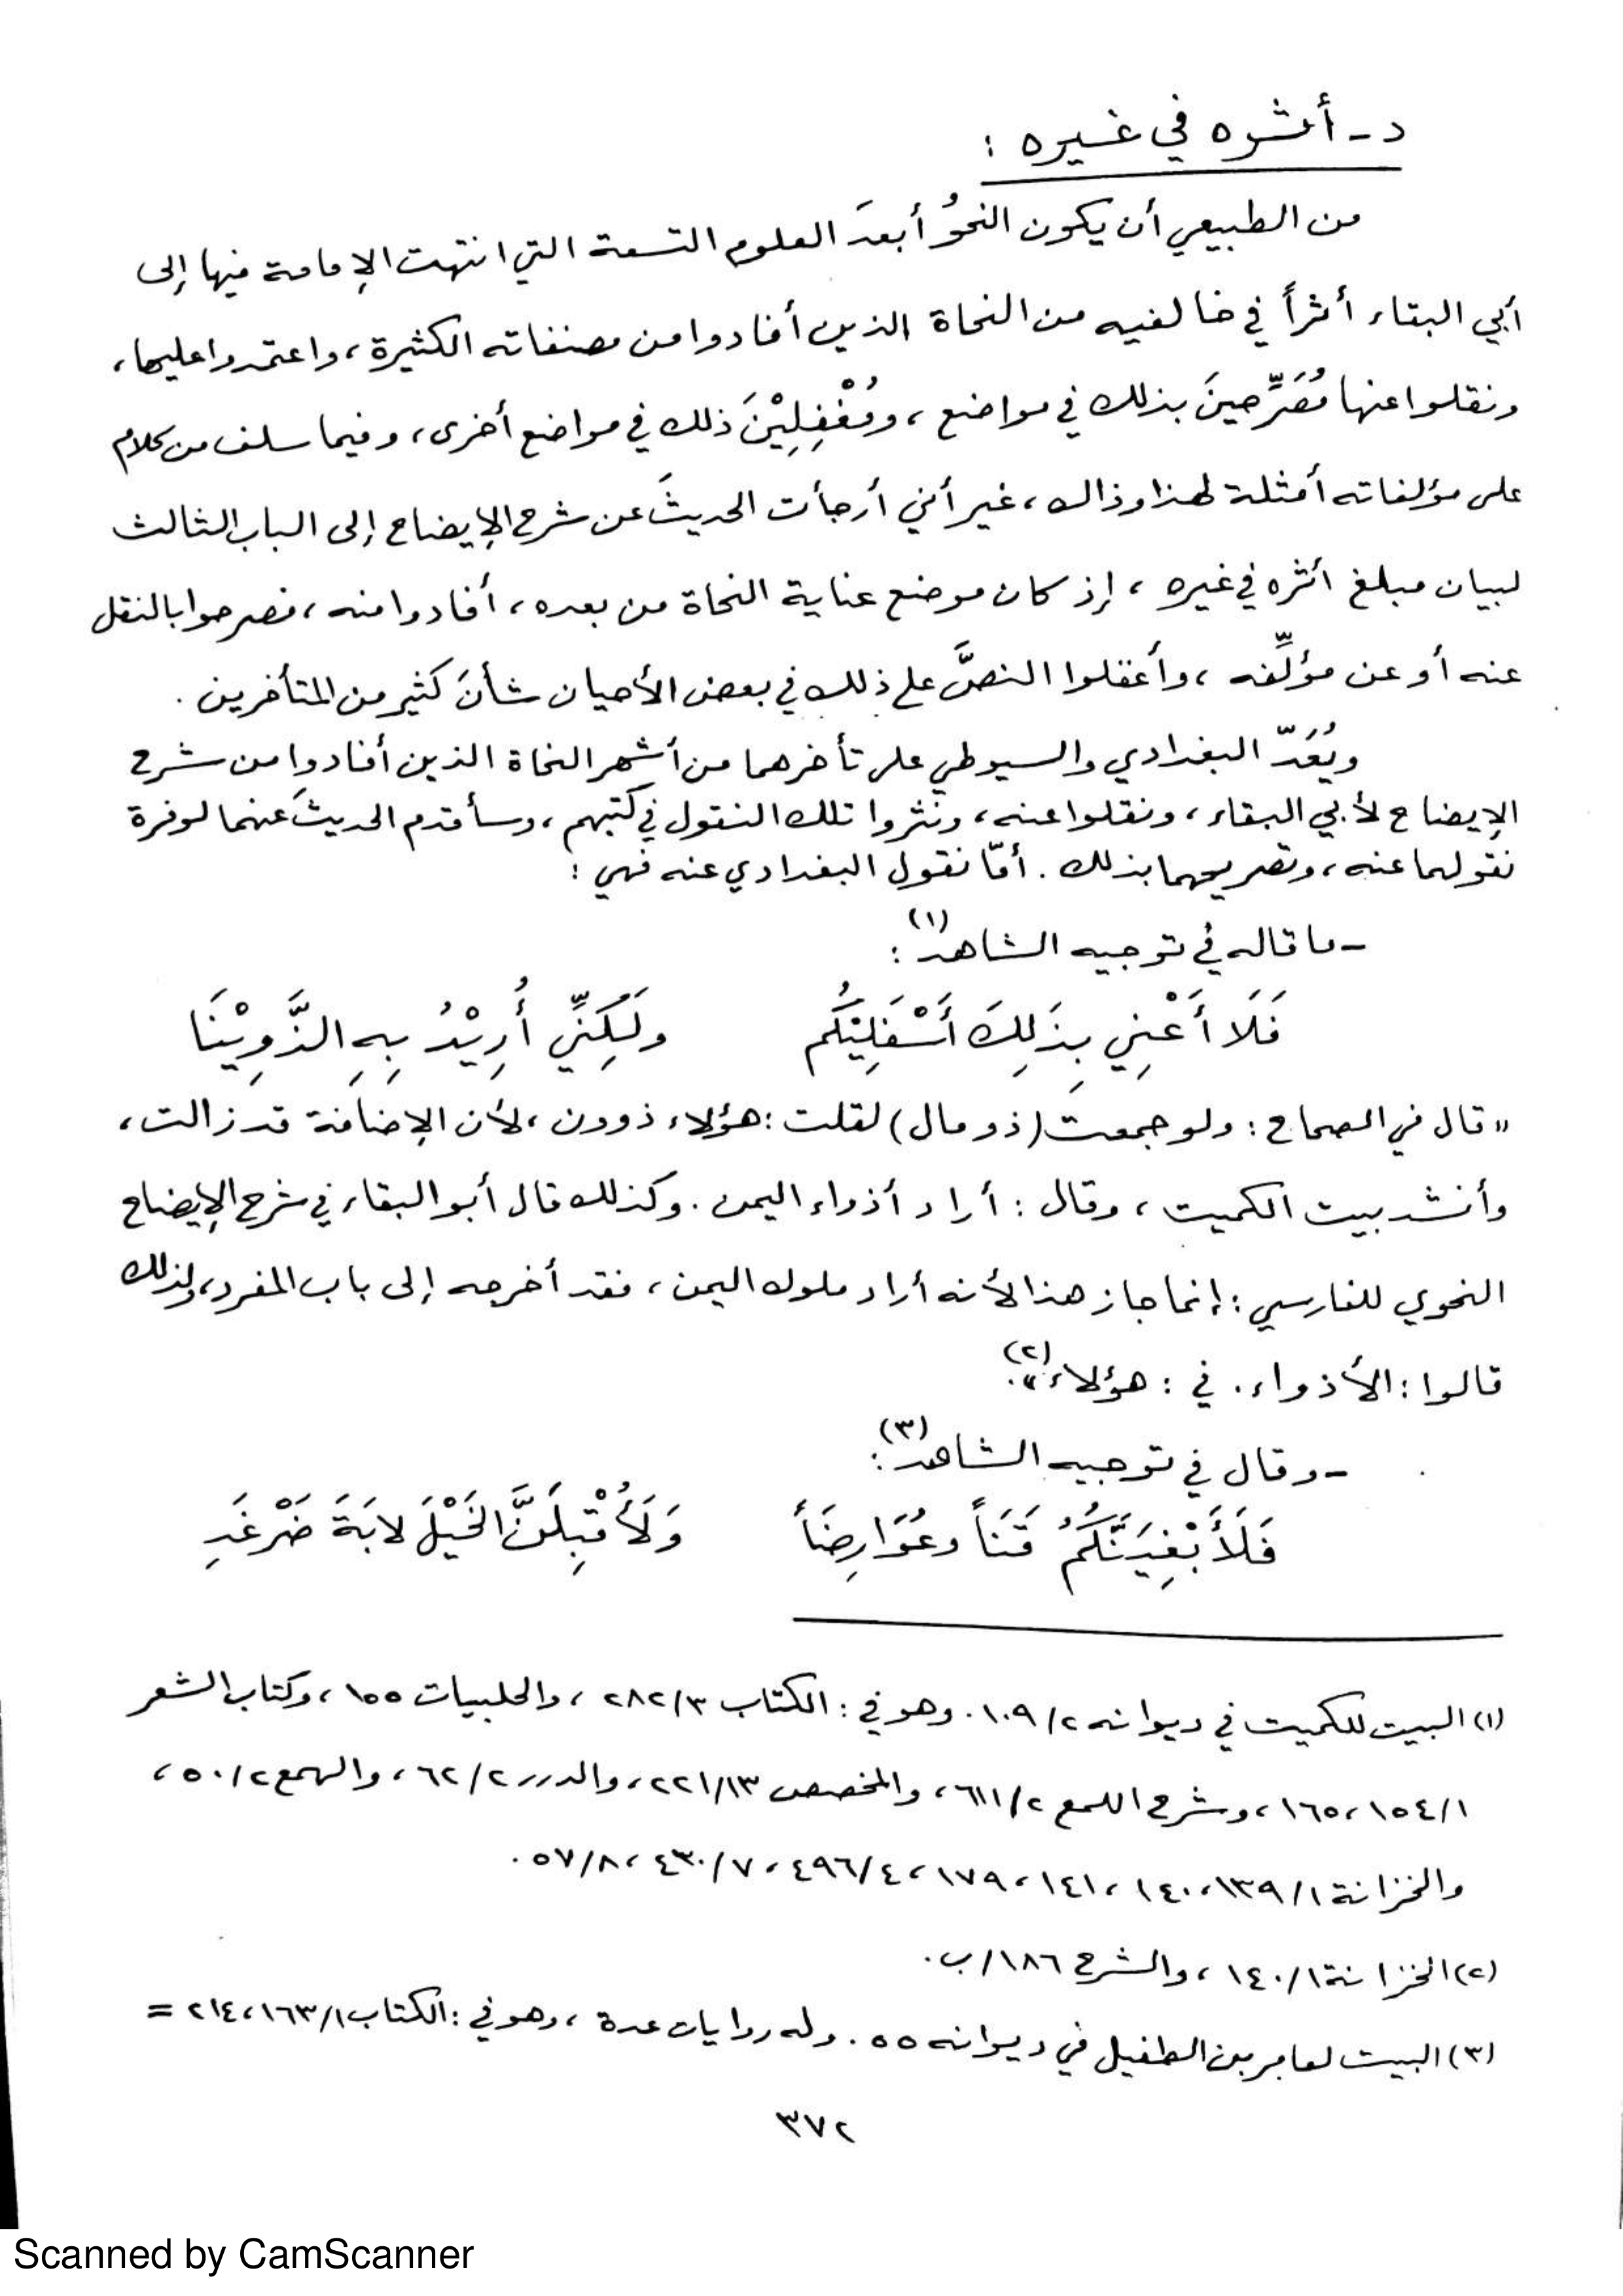 د - أثره في غيره :
من الطبيعي أن يكون النحوُ أبعدَ العلوم التسعة التي انتهت الإمامة فيها إلى
أبي البقاء أثراً في خالفيه من النحاة الذين أفادوا من مصنفاته الكثيرة، واعتمدوا عليها،
ونقلوا عنها مُصَرِّحينَ بذلك في مواضع، ومُغْفِلِيْنَ ذلك في مواضع أخرى، وفيما سلف من كلام
على مؤلفاته أمثلة لهذا وذاك، غير أنني أرجأت الحديثَ عن شرح الإيضاح إلى الباب الثالث
لبيان مبلغ أثره في غيره، إذ كان موضع عناية النحاة من بعده، أفادوا منه، فصرحوا بالنقل
عنه أو عن مؤلِّفه، وأغفلوا النصَّ على ذلك في بعض الأحيان شأنَ كثير من المتأخرين.
ويُعَدّ البغدادي والسيوطي على تأخرهما من أشهر النحاة الذين أفادوا من شرح
الإيضاح لأبي البقاء، ونقلوا عنه، ونثروا تلك النقول في كتبهم، وسأقدم الحديثَ عنهما لوفرة
نقولهما عنه، وتصريحهما بذلك. أمّا نقول البغدادي عنه فهي :
- ما قاله في توجيه الشاهد(١):
فَلَا أَعْنِي بِذَلِكَ أَسْفَلِيْكُم ولَكِنِّي أُرِيْدُ بِهِ الذَّوِيْنَا
«قال في الصحاح: ولو جمعت (ذو مال) لقلت: هؤلاء ذوون، لأن الإضافة قد زالت،
وأنشد بيت الكميت، وقال: أراد أذواء اليمن. وكذلك قال أبو البقاء في شرح الإيضاح
النحوي للفارسي: إنما جاز هذا لأنه أراد ملوك اليمن، فقد أخرجه إلى باب المفرد، ولذلك
قالوا: الأذواء. في: هؤلاء»(٢).
- وقال في توجيه الشاهد(٣):
فَلَأَبْغِيَنَّكُمُ قَنَاً وعُوَارِضَاً وَلَأُقْبِلَنَّ الخَيْلَ لابَةَ ضَرْغَدِ
(١) البيت للكميت في ديوانه ٢/١٠٩. وهو في: الكتاب ٣/٢٨٢، والحلبيات ١٥٥، وكتاب الشعر
١/١٥٤، ١٦٥، وشرح اللمع ٢/٦١١، والمخصص ١٣/٢٢١، والدرر ٢/٦٢، والهمع ٢/٥٠،
والخزانة ١/١٣٩، ١٤٠، ١٤١، ١٧٩، ٤/٤٩٦، ٧/٤٣٠، ٨/٥٧.
(٢) الخزانة ١/١٤٠، والشرح ١٨٦/ب.
(٣) البيت لعامر بن الطفيل في ديوانه ٥٥. وله روايات عدة، وهو في: الكتاب ١/١٦٣، ٢١٤ =
٣٧٢
Scanned by CamScanner